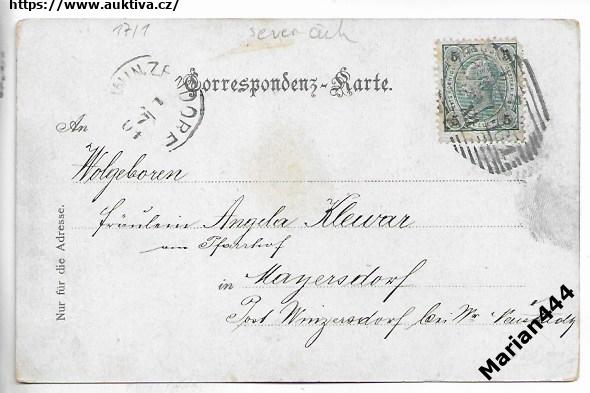 https://www.auktiva.cz/
17/1
Correspondenz-Karte.
5 5
An
Wolgeboren
Fräulein Angela Klewar
am Pfarrhof
in Mayersdorf
Post Winzersdorf bei Wr Neustadt
Nur für die Adresse.
Marian444